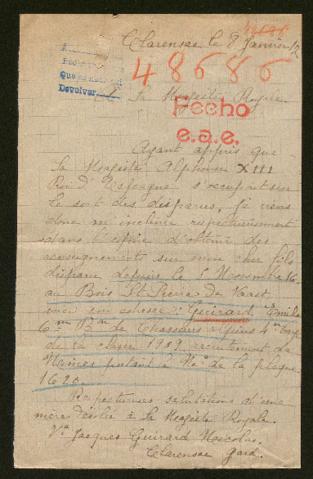 Clarensac le 8 Janvier 17
48686
Devolver
A Sa Majesté Royale
Fecho
e.a.e.
Ayant appris que
Sa Majesté Alphonse XIII
Roi d'Espagne s'occupait sur
le sort des disparus, je viens
donc m'incliner respectueusement
dans l'espoir d'obtenir des
renseignements sur mon cher fils
disparu depuis le 5 Novembre 16
au Bois St Pierre de Vaast
son adresse : Guirard Emile
6me Bon de Chasseurs Alpins 4me
de la classe 1909, recrutement de
Nîmes portant le No de la plaque
1620.
Respectueuses salutations d'une
mère désolée à Sa Majesté Royale.
Ve Jacques Guirard Nicolas.
Clarensac Gard.